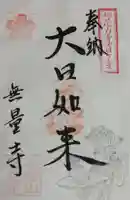 奉納
大日如来
無量寺